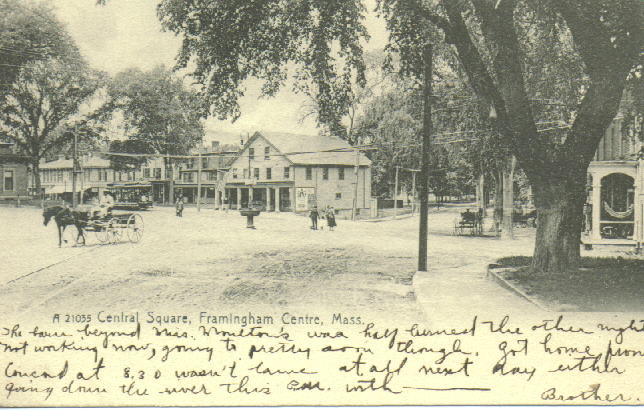 A 21035 Central Square, Framingham Centre, Mass.
The barn beyond Miss. Moulton's was half burned the other night
not working now, going to pretty soon though. Got home from
Concord at 8.30 wasn't lame at all next day either
going down the river this P.M. with
Brother.